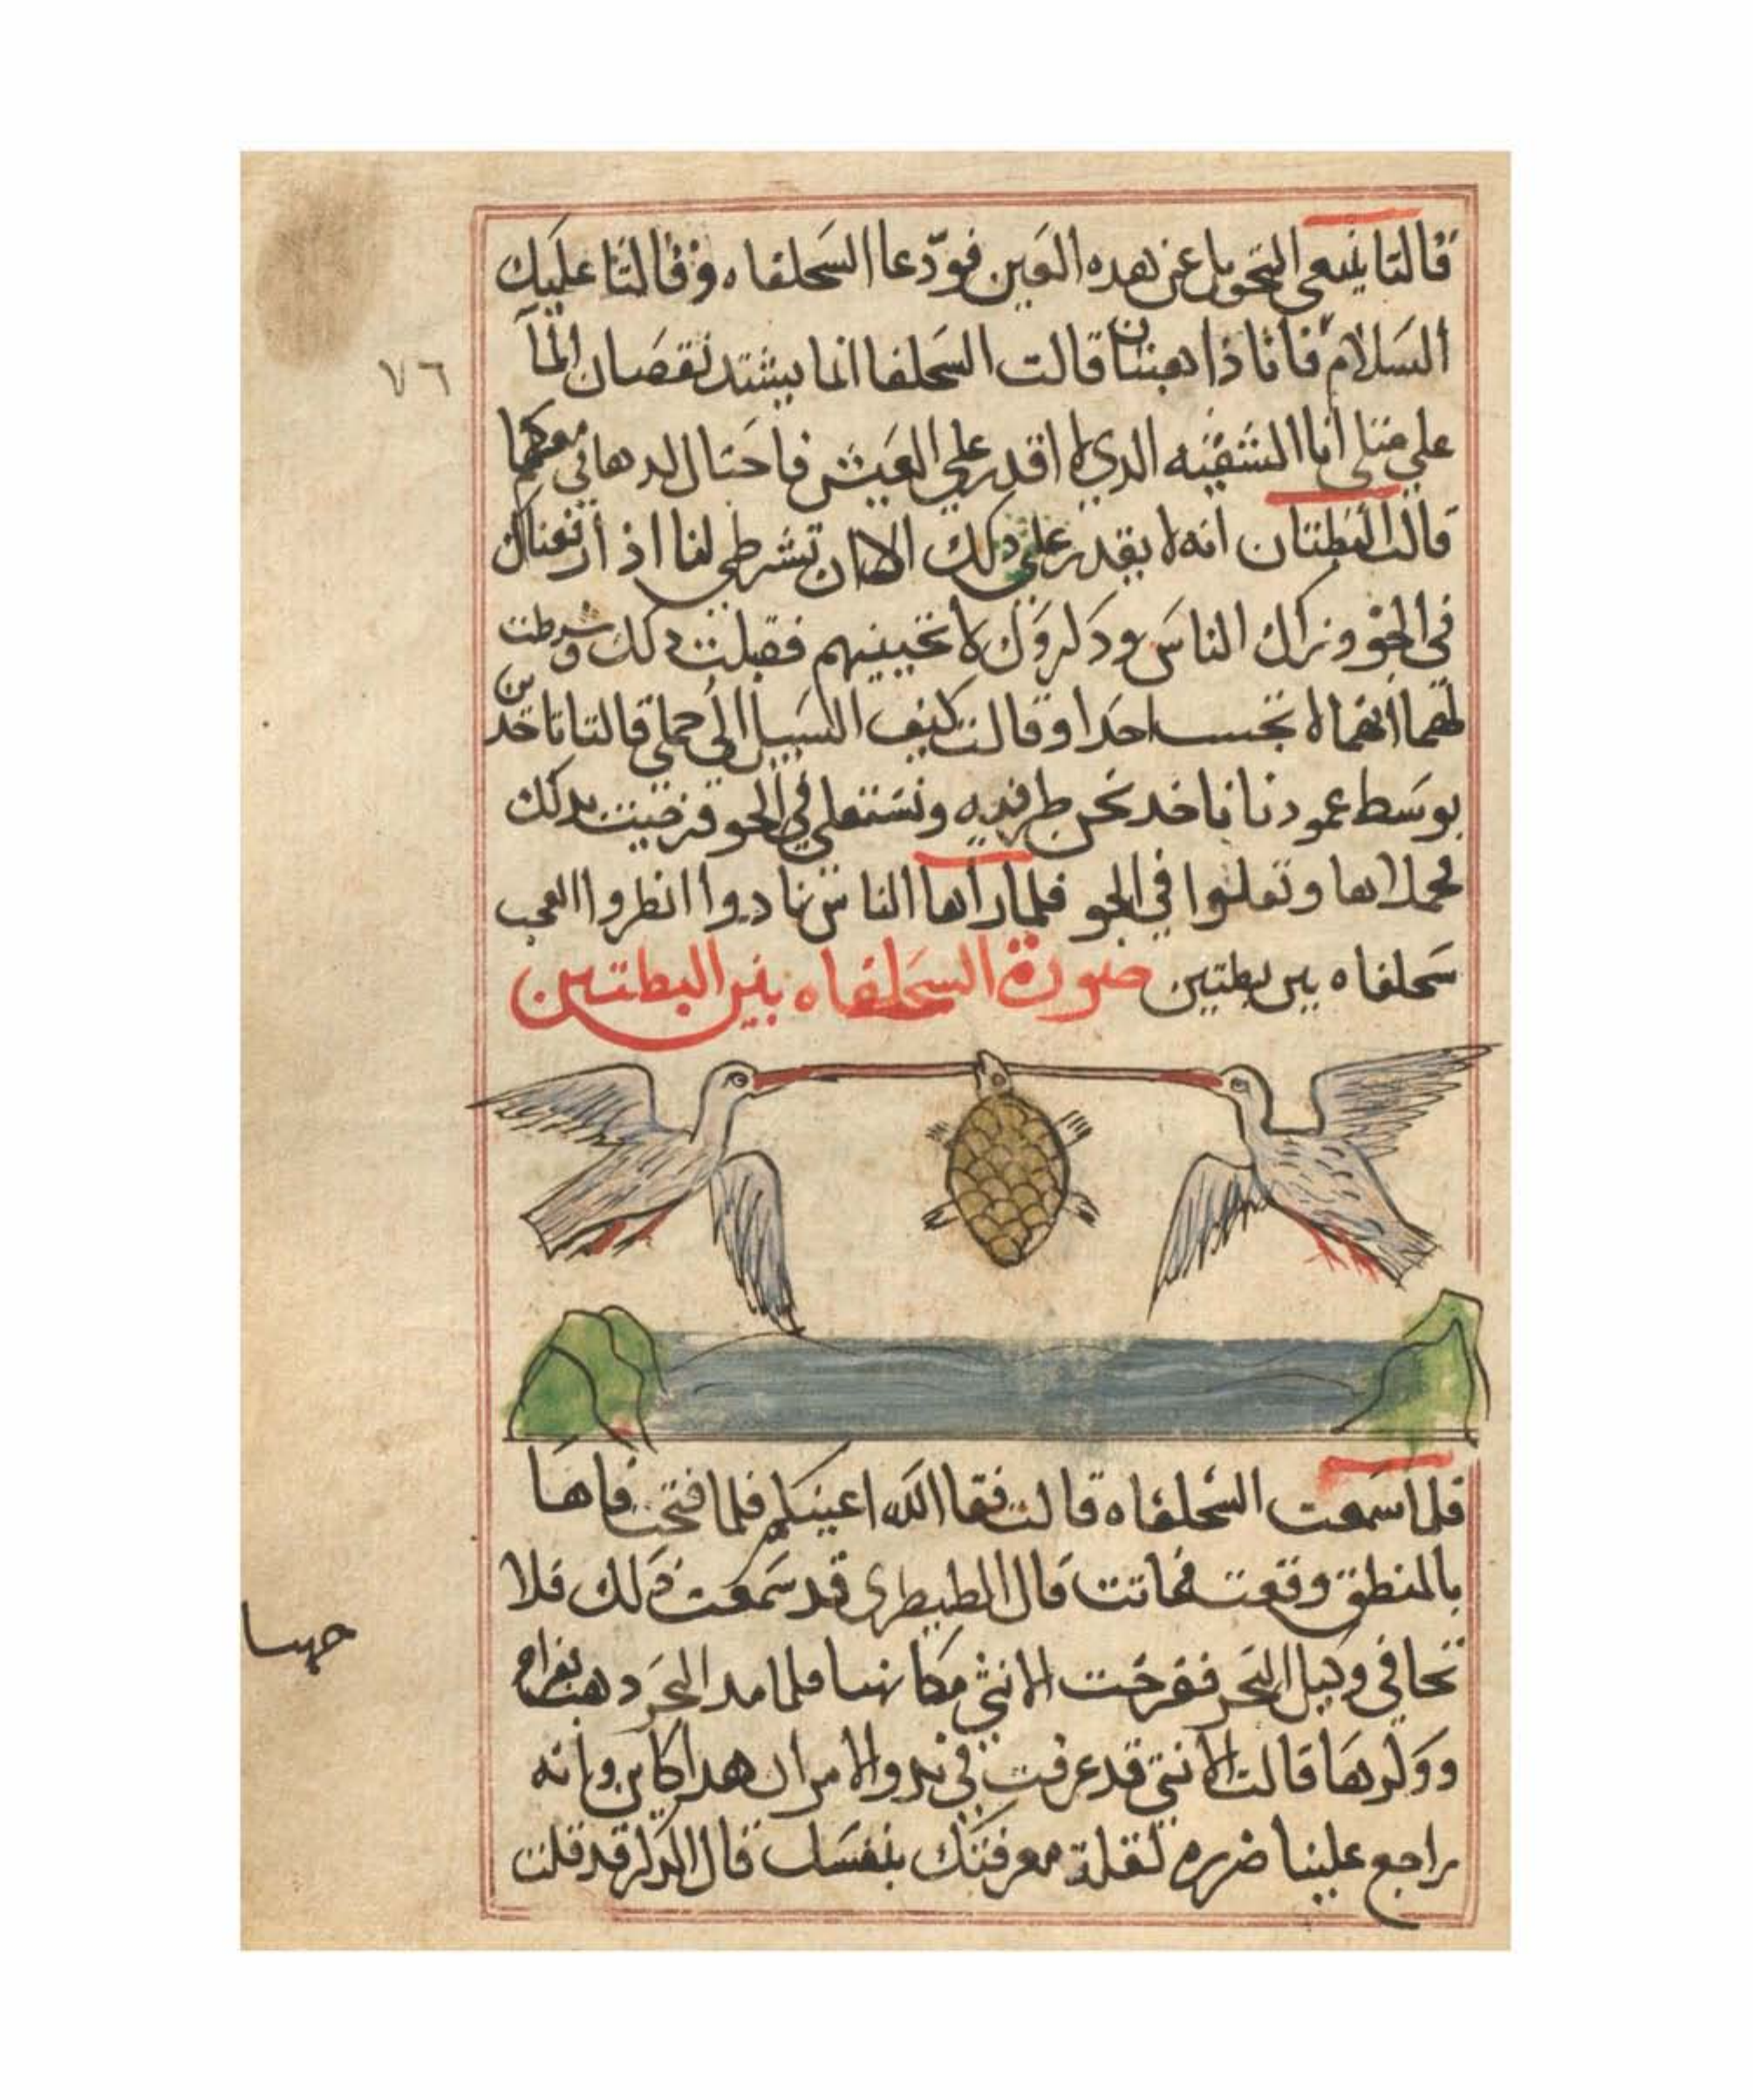 قالتا ينبغي التحويل عن هده العين فودعا السحلفاه وقالتا عليك
السلام فاننا ذاهبتان قالت السحلفا انما يشتد نقصان المآ
علي مثلي انا الشقيه الدي لا اقدر علي العيش فاحتال لدهابي معكما
قالت البطتان انه لا يقدر علي دلك الا ان تشرطي لنا اذ ارفعناك
في الجو وتراك الناس ودكروك لا تجيبيهم فقبلت دلك وشرطت
لهما انهما لا تجيب احدا وقالت كيف السبيل الي حملي قالتا تاخدين
بوسط عمود ناناخد نحن طرفيه ونستعلي في الجو فرضيت بدلك
فحملاها وتعلوا في الجو فلما راها الناس نادوا انظروا العجب
سحلفاه بين بطتين صورة السحلفاه بين البطتين
فلما سمعت السحلفاه قالت فقا الله اعينكم فلما فتحت فاها
بالمنطق وقعت فماتت قال الطيطوي قد سمعت ذلك فلا
تخافي وكيل البحر ففرخت الانثي مكانها فلما مد البحر دهب بفراخ
وولدها قالت الانثي قد عرفت في بدو الامر ان هدا كاين وانه
راجع علينا ضرره لقلة معرفتك بنفسك قال الدكر قد قلت
٧٦